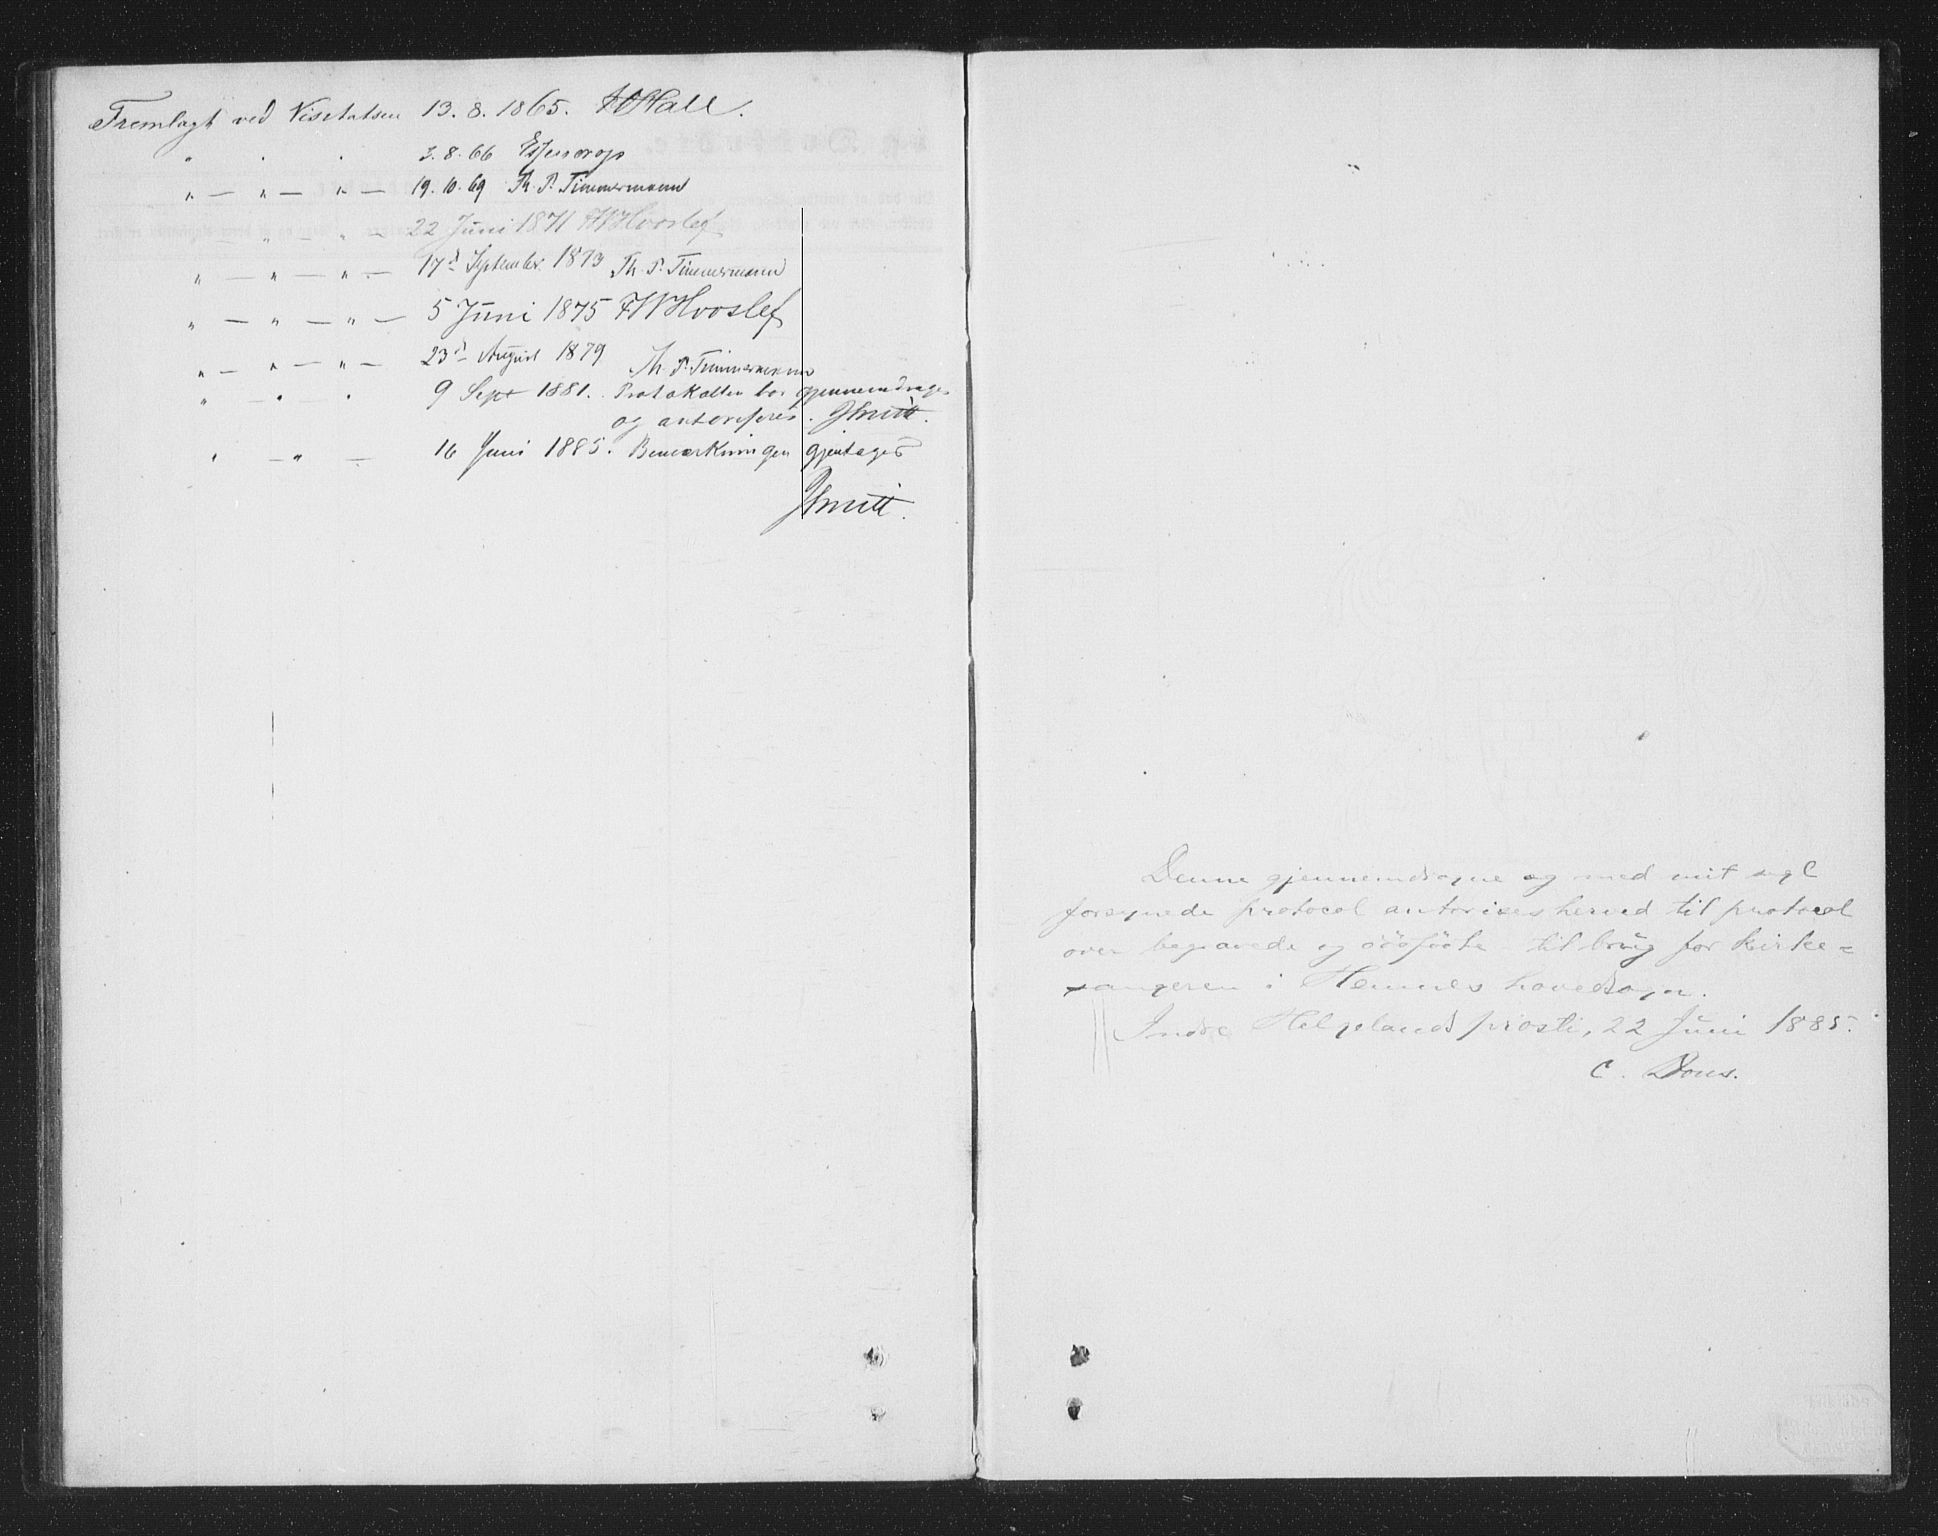 Fremlagt ved Visitatsen 13. 8. 1865. Hall.
" . . 3. 8. 66 Essendrop
" — " — " — 19. 10. 69 Th. P. Timmermann
" — " — 22 Juni 1871 FWHvoslef
" — " — " — 17d September 1873 Th. P. Timmermann
" — " — " — 5 Juni 1875 FWHvoslef
" — " — " — 23d August 1879 Th. P. Timmermann
" — " . 9 Sept 1881. Protokollen bør gjennemdrages
og autoriseres. Smitt.
" — " — 16 Juni 1885. Bemærkningen gjentages
Smitt.
Denne gjennemdragne og med mit segl
forsynede protocol autorises herved til protocol
over begravede og dødfødte til brug for kirke=
sangeren i Hemnes hovedsogn.
Indre Helgelands prosti, 22 Juni 1885.
C. Dons.